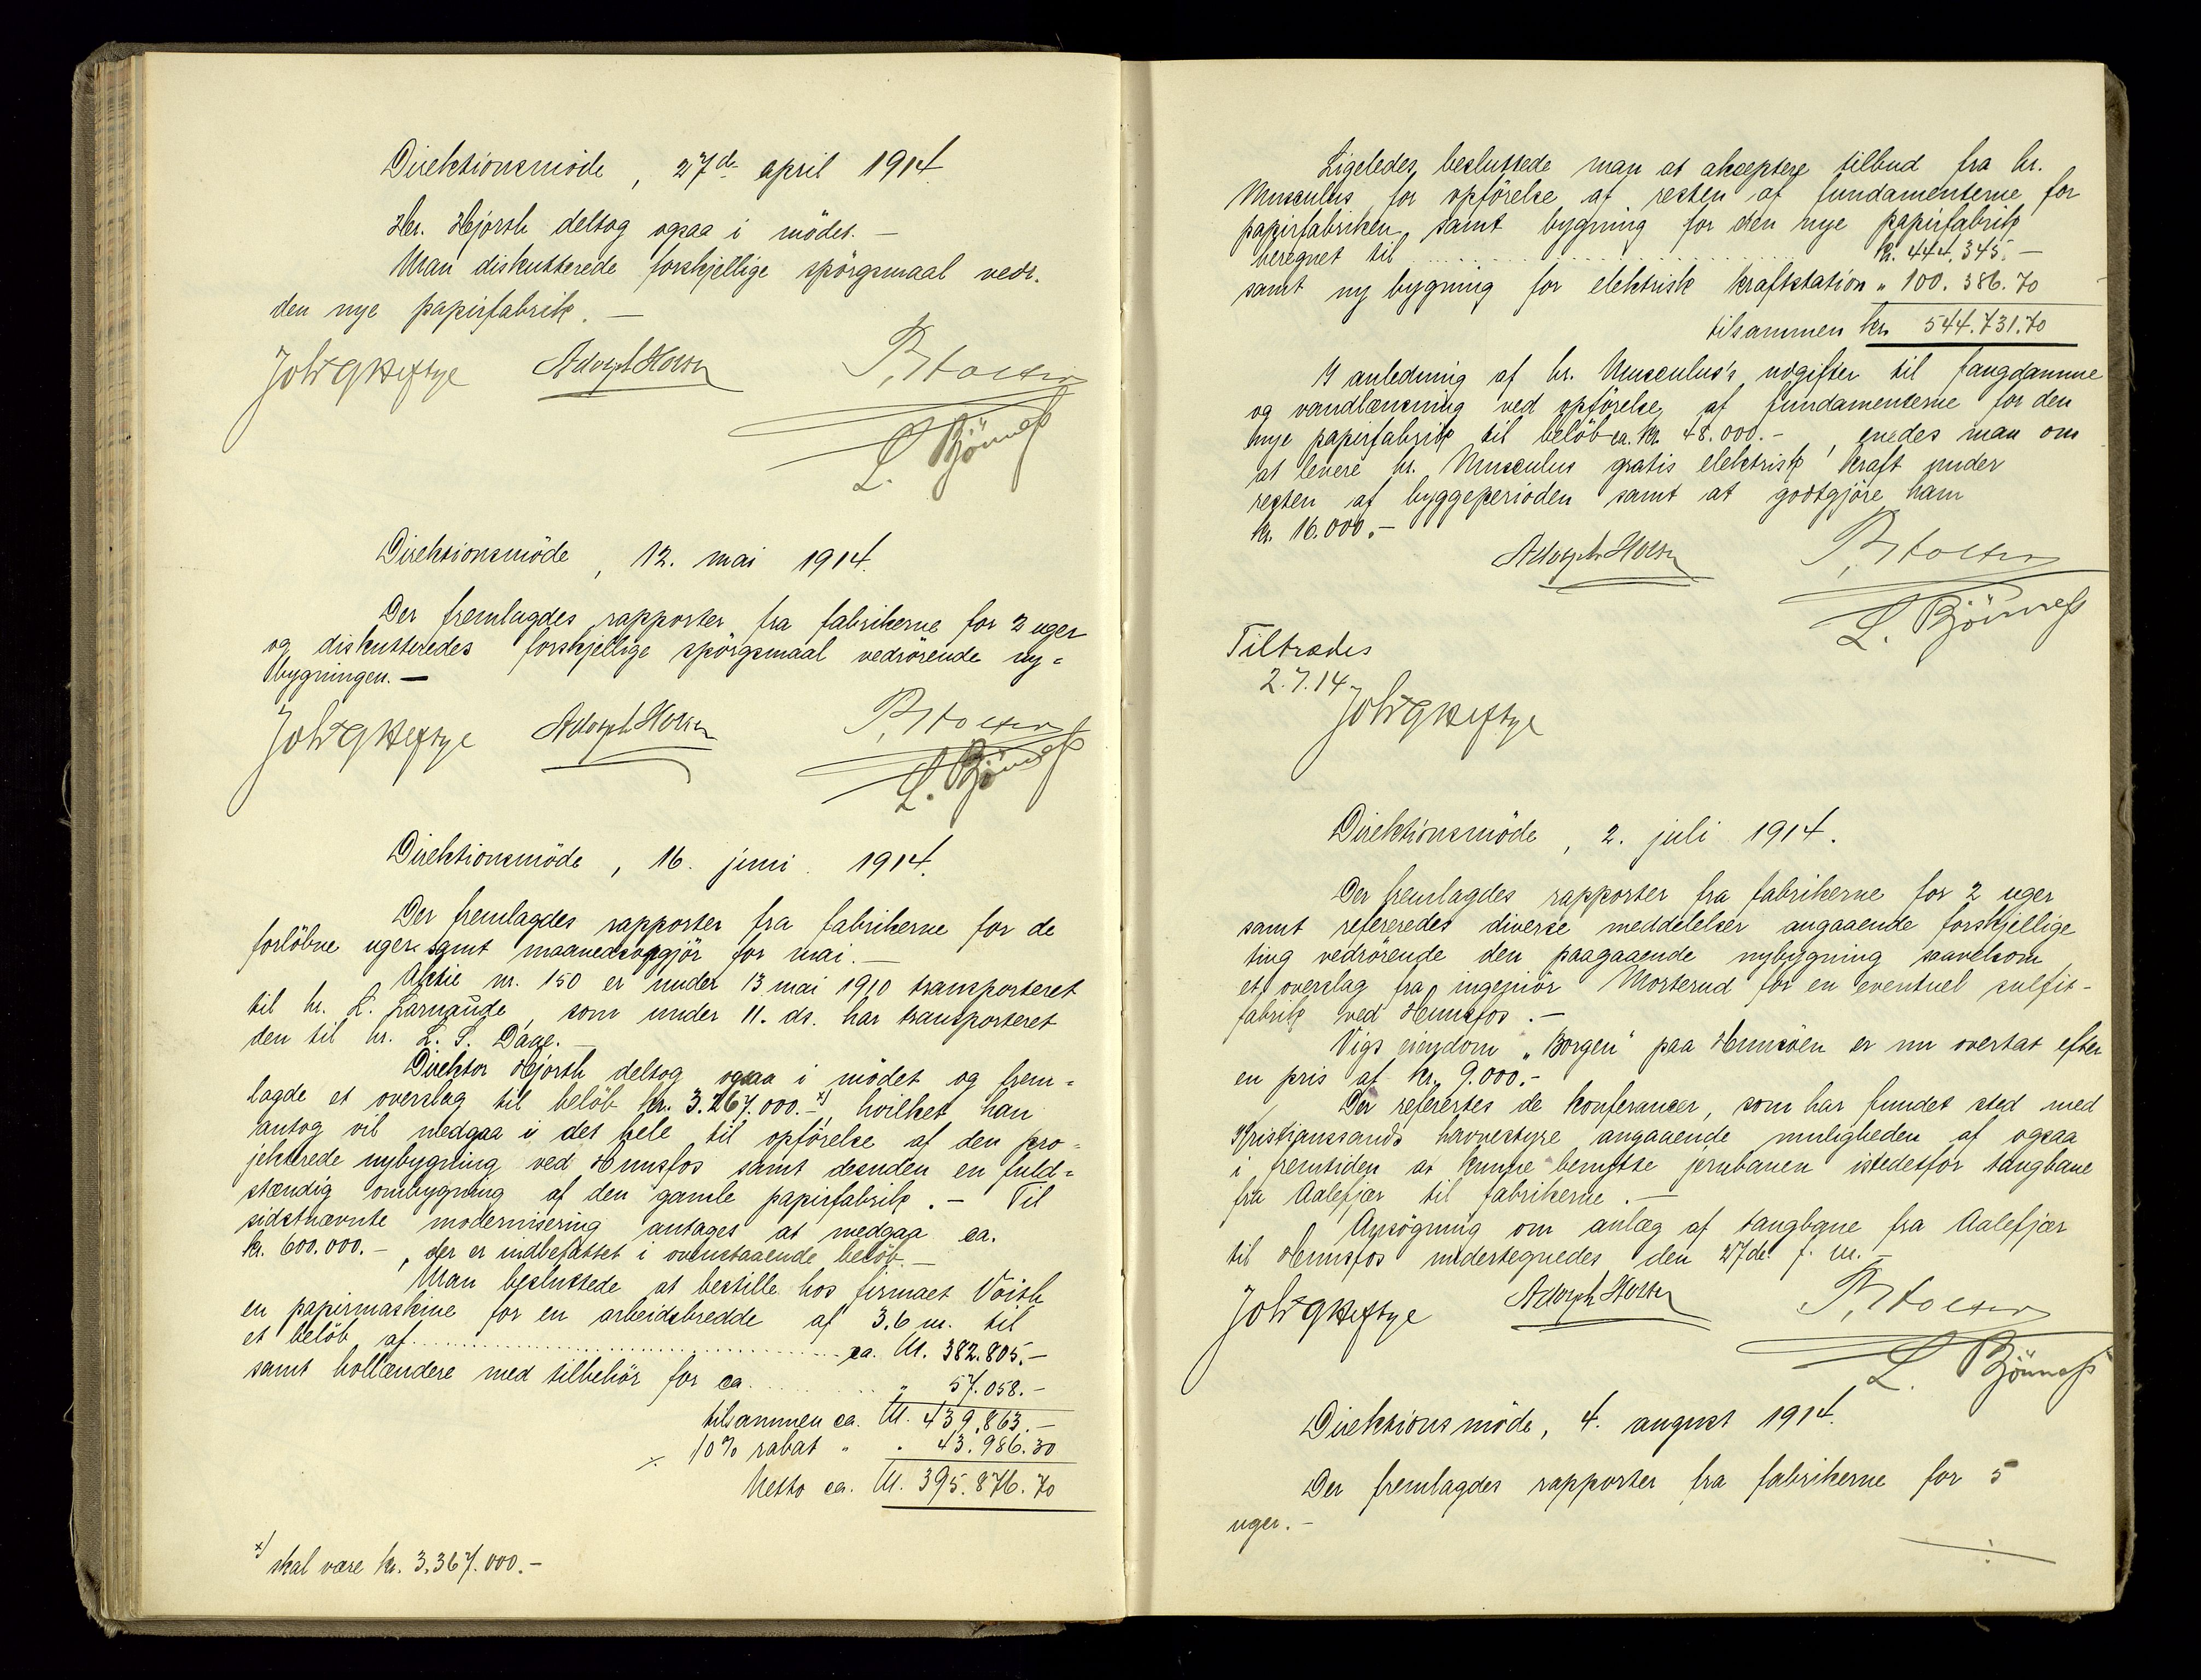 Direktionsmöde, 27de april 1914.
Hr. Hjorth deltog ogsaa i mödet. —
Man diskutterede forskjellige spörgsmaal vedr.
den nye papirfabrik. —
Joh T G Heftye Adolph Holsen
L. Bjönness
Direktionsmöde, 12. mai 1914.
Der fremlagdes rapporter fra fabrikerne for 2 uger
og diskutteredes forskjellige spörgsmaal vedrörende ny=
bygningen. —
Joh T G Heftye Adolph Holsen
L. Bjönness
Direktionsmöde, 16. juni 1914.
Der fremlagdes rapporter fra fabrikerne for de
forlöbne uger samt maanedsopgjör for mai. —
Aktie nr. 150 er under 13 mai 1910 transporteret
til hr. L. Larnaude, som under 11. ds. har transporteret
den til hr. L. S. Dage. —
Direktor Hjorth deltog ogsaa i mödet og frem=
lagde et overslag til belöb kr. 3.267.000.- x), hvilket han
antog vil medgaa i det hele til opförelse af den pro=
jekterede nybygning ved Hunsfos samt desuden en fuld=
stændig ombygning af den gamle papirfabrik. — Til
sidstnævnte modernisering antages at medgaa ca.
kr. 600.000.-, der er indbefattet i ovenstaaende belöb. —
Man besluttede at bestille hos firmaet Voith
en papirmaskine for en arbeidsbredde af 3.6 m. til
et belöb af .......... ca. M. 382.805.—
samt hollændere med tilbehör for ca. .......... " 57.058.—
tilsammen ca. M. 439.863.—
÷ 10% rabat " " 43.986.30
Netto ca. M. 395.876.70
x) skal være kr. 3.367.000.-
Ligeledes besluttede man at akseptere tilbud fra hr.
Musculus for opförelse af resten af fundamenterne for
papirfabriken samt bygning for den nye papirfabrik
beregnet til .......... kr. 444.345.—
samt ny bygning for elektrisk kraftstation " 100.386.70
tilsammen kr. 544.731.70
I anledning af hr. Musculus's udgifter til fangdamme
og vandlænsning ved opförelse af fundamenterne for den
nye papirfabrik til belöb ca. kr. 48.000.-, enedes man om
at levere hr. Musculus gratis elektrisk kraft under
resten af byggeperioden samt at godtgjöre ham
kr. 16.000.-
Adolph Holsen
L. Bjönness
Tiltrædes
2.7.14
Joh T G Heftye
Direktionsmöde, 2. juli 1914.
Der fremlagdes rapporter fra fabrikerne for 2 uger
samt refereredes diverse meddelelser angaaende forskjellige
ting vedrörende den paagaaende nybygning saavelsom
et overslag fra ingeniör Morterud for en eventuel sulfit-
fabrik ved Hunsfos. —
Vigs eiendom „Borgen" paa Hunsöen er nu overtat efter
en pris af kr. 9.000.-
Der refertes de konferanser, som har fundet sted med
Kristianssands havnestyre angaaende muligheden af ogsaa
i fremtiden at kunne benytte jernbanen istedetfor taugbane
fra Aalefjær til fabrikerne. —
Ansögning om anlæg af taugbane fra Aalefjær
til Hunsfos undertegnedes den 27de f. m. —
Joh T G Heftye Adolph Holsen
L. Bjönness
Direktionsmöde, 4. august 1914.
Der fremlagdes rapporter fra fabrikerne for 5
uger. —